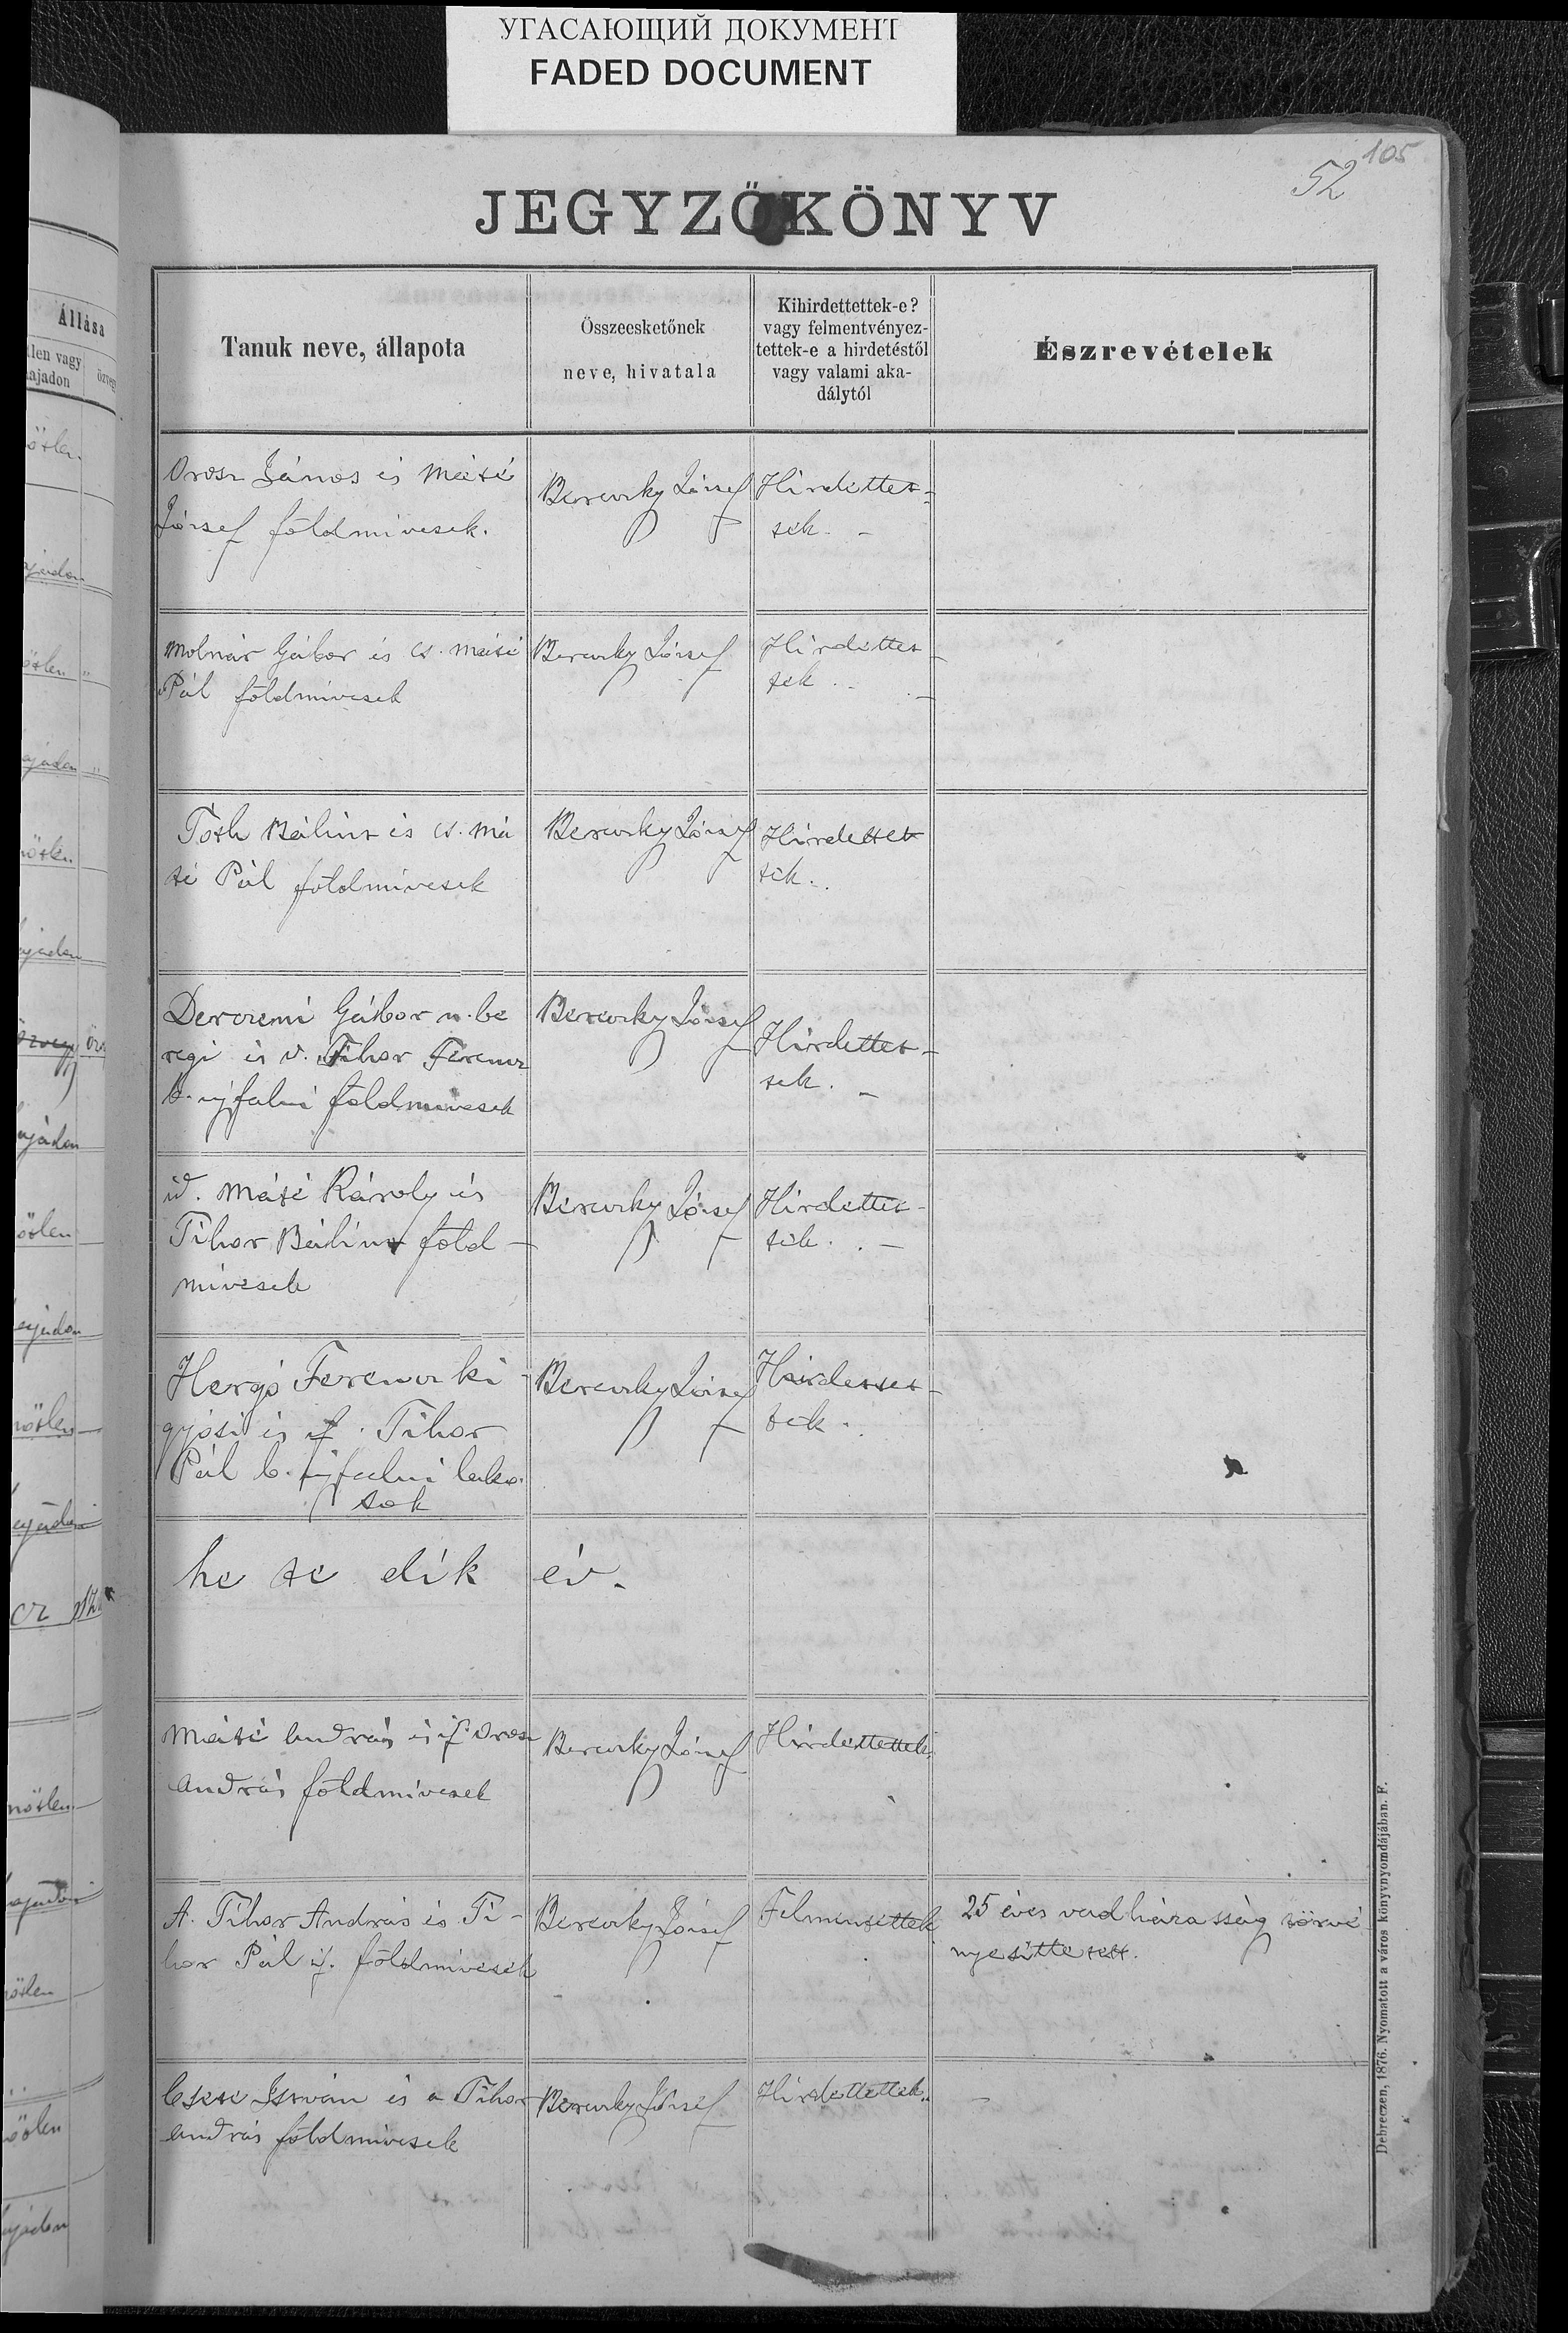 УГАСАЮЩИЙ ДОКУМЕНТ
FADED DOCUMENT
105
52
JEGYZŐKÖNYV
Állása
tlen vagy
ajadon
özvegy
Tanuk neve, állapota
Összeesketőnek
neve, hivatala
Kihirdettettek-e?
vagy felmentvényez-
tettek-e a hirdetéstől
vagy valami aka-
dálytól
Észrevételek
Orosz János és Máté
József földmívesek.
Bereczky József
Hirdettet-
tek. -
Molnár Gábor és cs. Máté
Pál földmívesek
Bereczky József
Hirdettet-
tek. -
Tóth Bálint és cs. Má
té Pál földmívesek
Bereczky József
Hirdettet
tek.
Derczeni Gábor n. be
regi és v. Tihor Ferencz
b. ujfalui földmívesek
Bereczky József
Hirdettet-
tek. -
id. Máté Károly és
Tihor Bálint föld-
mívesek
Bereczky József
Hirdettet-
tek. -
Hergó Ferencz ki-
gyósi és if. Tihor
Pál b. ujfalui lako-
sok
Bereczky József
Hirdettet-
tek.
he te dik év.
Máté András és if. Orosz
András földmívesek
Bereczky József
Hirdettettek
A. Tihor András és Ti-
hor Pál if. földmívesek
Bereczky József
Felmentettek
25 éves vadházasság törvé
nyesittetett.
Csete István és a Tihor
András földmívesek
Bereczky József
Hirdettettek.
-
Debreczen, 1876. Nyomatott a város könyvnyomdájában. F.